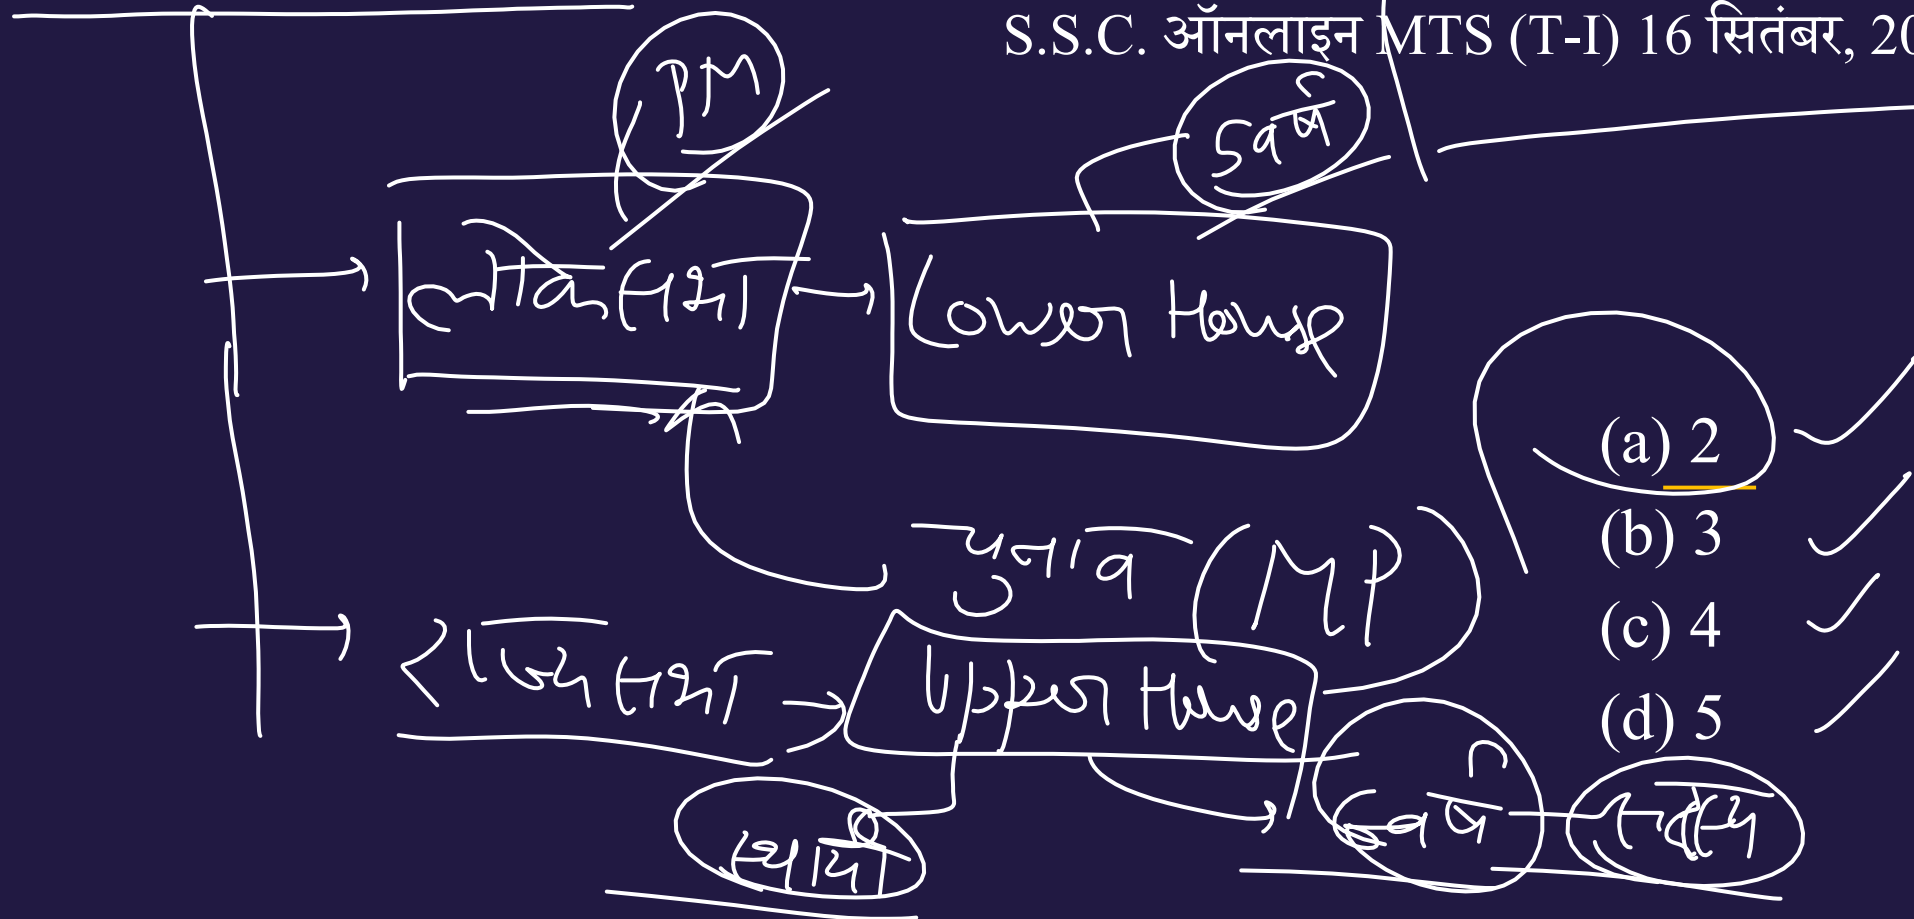 S.S.C. ऑनलाइन MTS (T-I) 16 सितंबर, 20
PM
5 वर्ष
लोकसभा
Lower House
(a) 2
(b) 3
चुनाव (MP)
(c) 4
राज्यसभा
Upper House
(d) 5
स्थायी
6 वर्ष
सदस्य